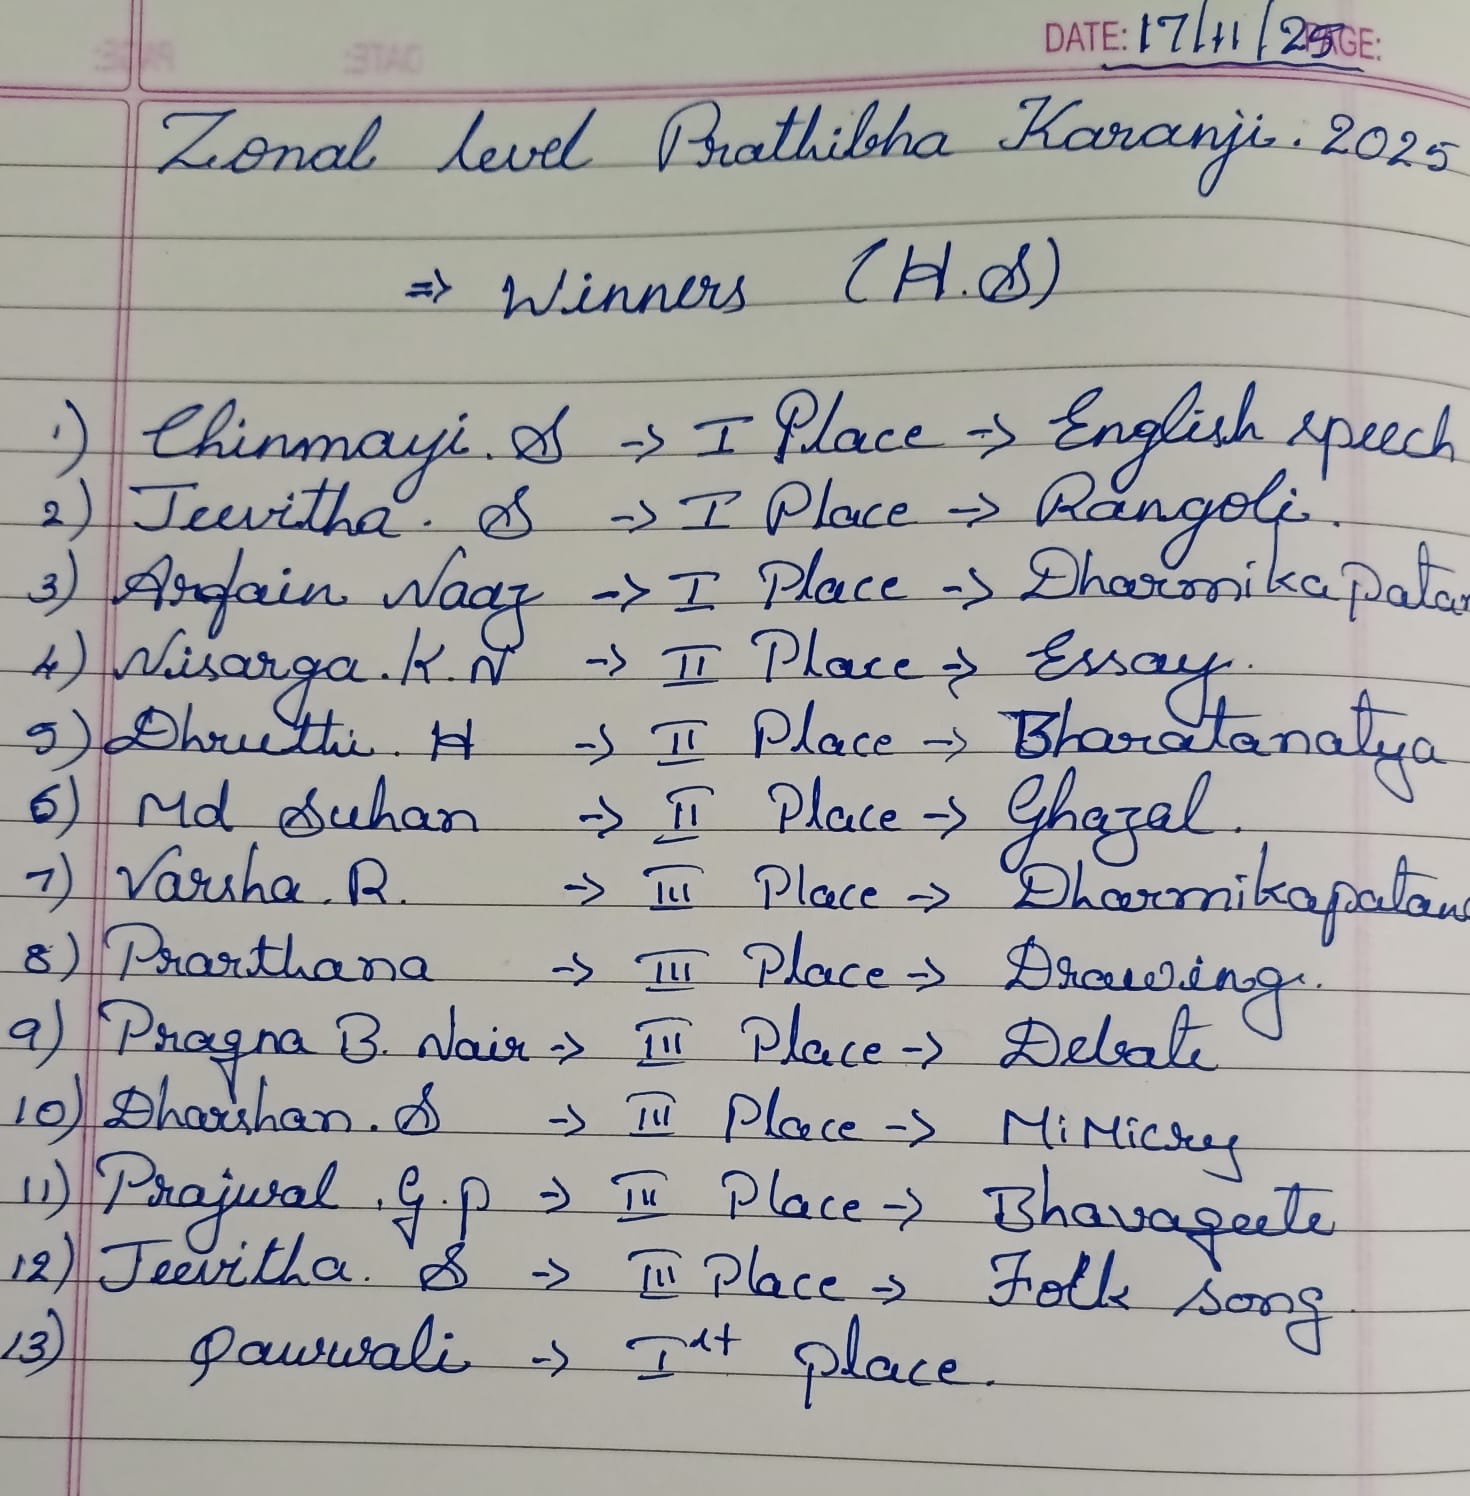 DATE: 17/11/25 PAGE:
Zonal level Prathibha Karanji. 2025
=> Winners (H.S)
1) Chinmayi. S -> I Place -> English speech
2) Jeevitha. S -> I Place -> Rangoli.
3) Naaz -> I Place -> Dharmikapatan
4) Nisarga. K. N -> II Place -> Essay.
5) Dhruthi. H -> II Place -> Bharatanatya
6) Md Suhan -> II Place -> Ghazal.
7) Varsha. R. -> III Place -> Dharmikapatan
8) Prarthana -> III Place -> Drawing.
9) Pragna B. Nair -> III Place -> Debate
10) Dharshan. S -> III Place -> MiMicry
11) Prajwal . G. P -> III Place -> Bhavageete
12) Jeevitha. S -> III Place -> Folk song
13) Qawwali -> Ist place.